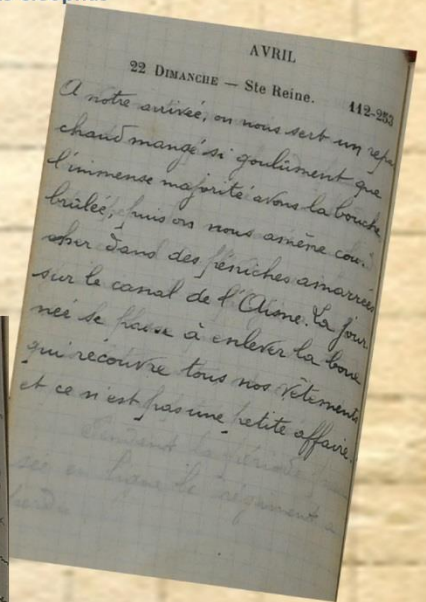 AVRIL
22 DIMANCHE — Ste Reine. 112-253
A notre arrivée, on nous sert un repas
chaud mangé si goulûment que
l'immense majorité avons la bouche
brûlée, puis on nous amène cou-
cher dans des péniches amarrées
sur le canal de l'Aisne. La jour
née se passe à enlever la boue
qui récouvre tous nos vêtements
et ce n'est pas une petite affaire.
Pendant la période
sée en ligne le régiment a
perdu